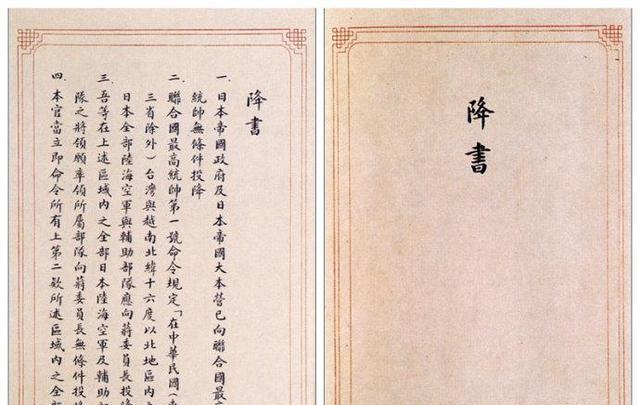 降書
降書
一、日本帝國政府及日本帝國大本營已向聯合國最高
統帥無條件投降
二、聯合國最高統帥第一號命令規定「在中華民國（
三省除外）台灣與越南北緯十六度以北地區內
日本全部陸海空軍與輔助部隊應向蔣委員長投降
三、吾等在上述區域內之全部日本陸海空軍及輔助
隊之將領願率領所屬部隊向蔣委員長無條件投
四、本官當立即命令所有上第二欵所述區域內之全部